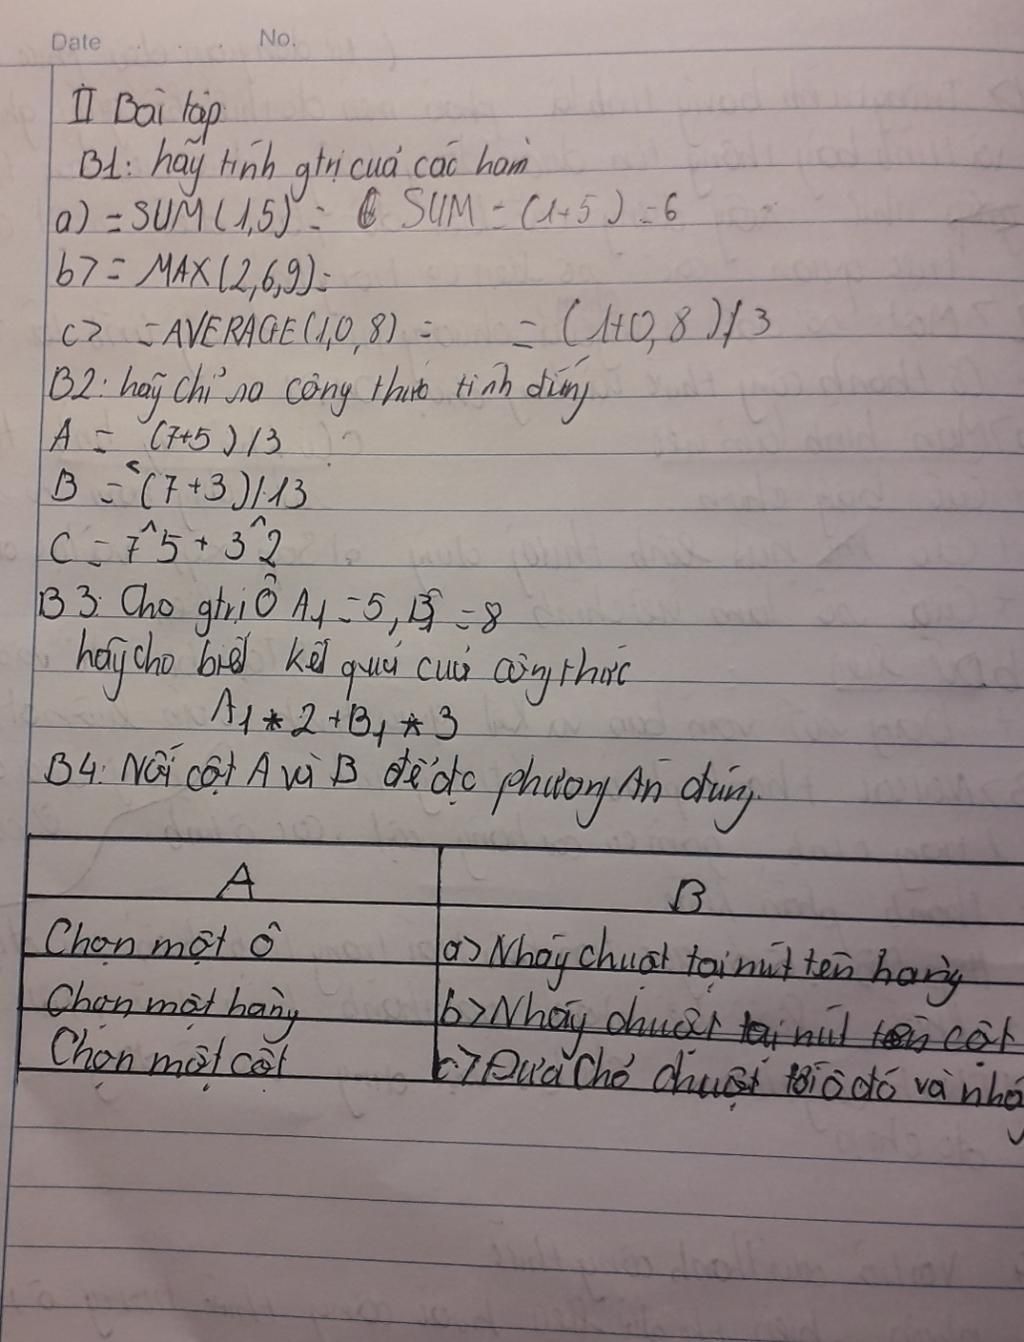 Date No.
II Bài tập
B1: hãy tính gtrị của các hàm
a) = SUM(1,5) = SUM = (1+5) = 6
b> = MAX(2,6,9)=
c> = AVERAGE(1,0,8) = = (1+0,8)/3
B2: hãy chỉ ra công thức tính đúng
A = (7+5)/3
B = (7+3)/13
C = 7^5 + 3^2
B3: Cho gtrị Ô A1 = 5, B1 = 8
hãy cho biết kết quả của công thức
A1 * 2 + B1 * 3
B4: Nối cột A và B để đc phương Án đúng.
A B
Chọn một ô a> Nháy chuột tại nút tên hàng
Chọn một hàng b> Nháy chuột tại nút tên cột
Chọn một cột c> Đưa chỏ chuột tới ô đó và nhá